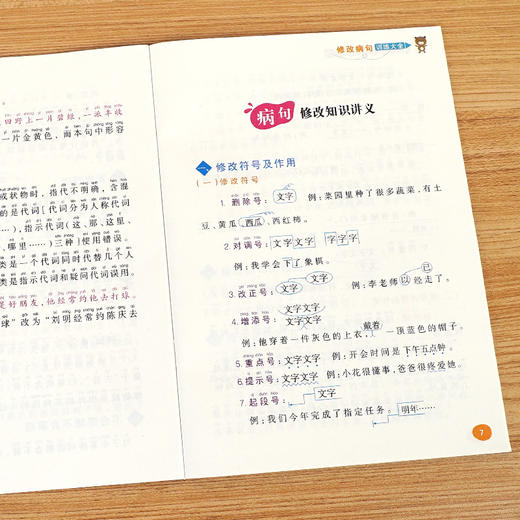 田野上一片碧绿,一派丰收
一片金黄色,而本句中形容
或状物时,指代不明确,含混
的是代词[代词分为人称代词
),指示代词(这、那、这里、
哪里……)三种]使用错误。
类是一个代词同时代替几个人
类是指示代词和疑问代词误用。
是好朋友,他经常约他去打球。
球”改为“刘明经常约陈庆去
修改病句 训练大全
病句 修改知识讲义
一、修改符号及作用
(一)修改符号
1.删除号: 文字 例:菜园里种了很多蔬菜,有土
豆、黄瓜、西瓜、西红柿。
2.对调号: 文字文字 字字字
例:我学会下了象棋。
3.改正号: 文字 文字 例:李老师以经走了。 已
4.增添号: 文字文字 文字文字
例:他穿着一件灰色的上衣, 戴着 一顶蓝色的帽子。
5.重点号: 文字文字 例:开会时间是下午五点钟。
6.提示号: 文字文字 例:小花很懂事,爸爸很疼爱她。
7.起段号: 文字
例:我们今年完成了指定任务。 明年……
7